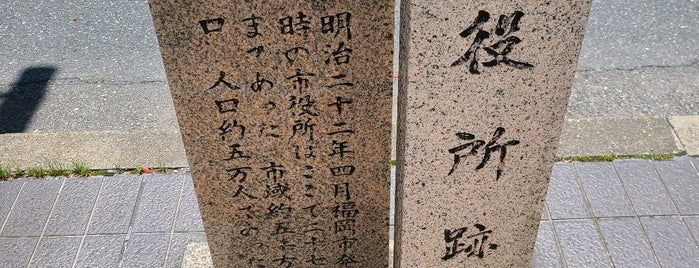 役所跡
明治二十二年四月福岡市発
時の市役所はここで二十七
まであった 市域約五七方
口 人口約五万人であった